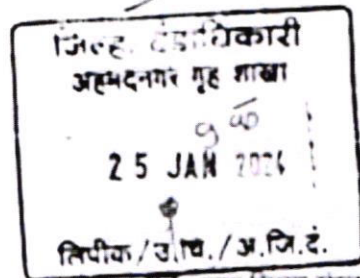 जिल्हा दंडाधिकारी
अहमदनगर गृह शाखा
25 JAN 2024
लिपीक/उ.चि./अ.जि.दं.